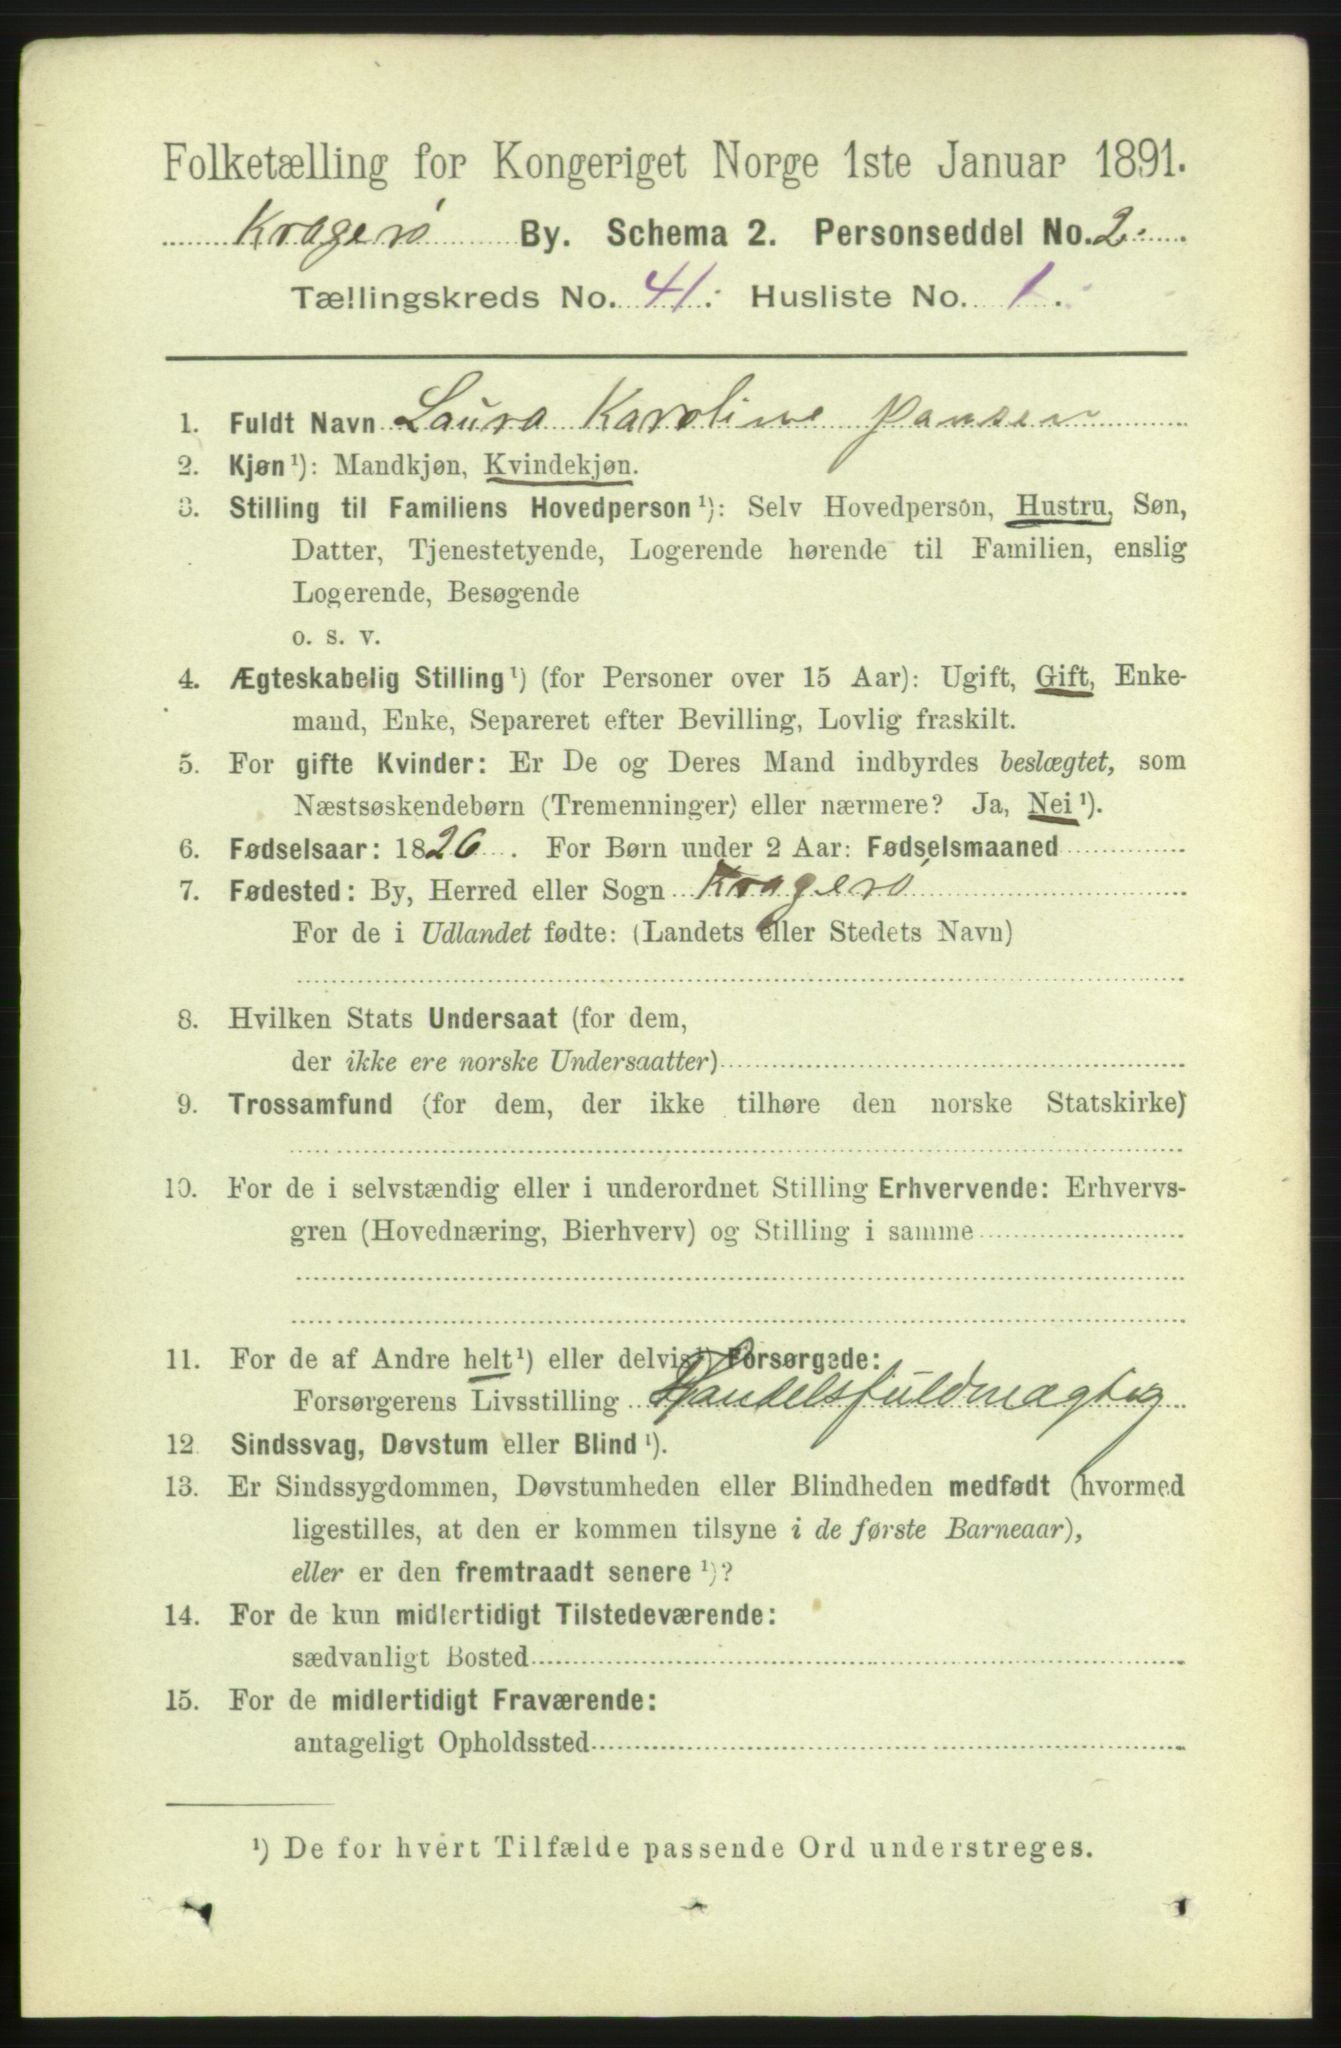 Folketælling for Kongeriget Norge 1ste Januar 1891.
Kragerø By. Schema 2. Personseddel No. 2.
Tællingskreds No. 41. Husliste No. 1.
1. Fuldt Navn Laura Karoline Jansen
2. Kjøn¹): Mandkjøn, Kvindekjøn.
3. Stilling til Familiens Hovedperson¹): Selv Hovedperson, Hustru, Søn,
Datter, Tjenestetyende, Logerende hørende til Familien, enslig
Logerende, Besøgende
o. s. v.
4. Ægteskabelig Stilling¹) (for Personer over 15 Aar): Ugift, Gift, Enke-
mand, Enke, Separeret efter Bevilling, Lovlig fraskilt.
5. For gifte Kvinder: Er De og Deres Mand indbyrdes beslægtet, som
Næstsøskendebørn (Tremenninger) eller nærmere? Ja, Nei¹).
6. Fødselsaar: 1826. For Børn under 2 Aar: Fødselsmaaned
7. Fødested: By, Herred eller Sogn Kragerø
For de i Udlandet fødte: (Landets eller Stedets Navn)
8. Hvilken Stats Undersaat (for dem,
der ikke ere norske Undersaatter)
9. Trossamfund (for dem, der ikke tilhøre den norske Statskirke)
10. For de i selvstændig eller i underordnet Stilling Erhvervende: Erhvervs-
gren (Hovednæring, Bierhverv) og Stilling i samme
11. For de af Andre helt¹) eller delvis¹) Forsørgede:
Forsørgerens Livsstilling Handelsfuldmægtig
12. Sindssvag, Døvstum eller Blind¹).
13. Er Sindssygdommen, Døvstumheden eller Blindheden medfødt (hvormed
ligestilles, at den er kommen tilsyne i de første Barneaar),
eller er den fremtraadt senere¹)?
14. For de kun midlertidigt Tilstedeværende:
sædvanligt Bosted
15. For de midlertidigt Fraværende:
antageligt Opholdssted
¹) De for hvert Tilfælde passende Ord understreges.